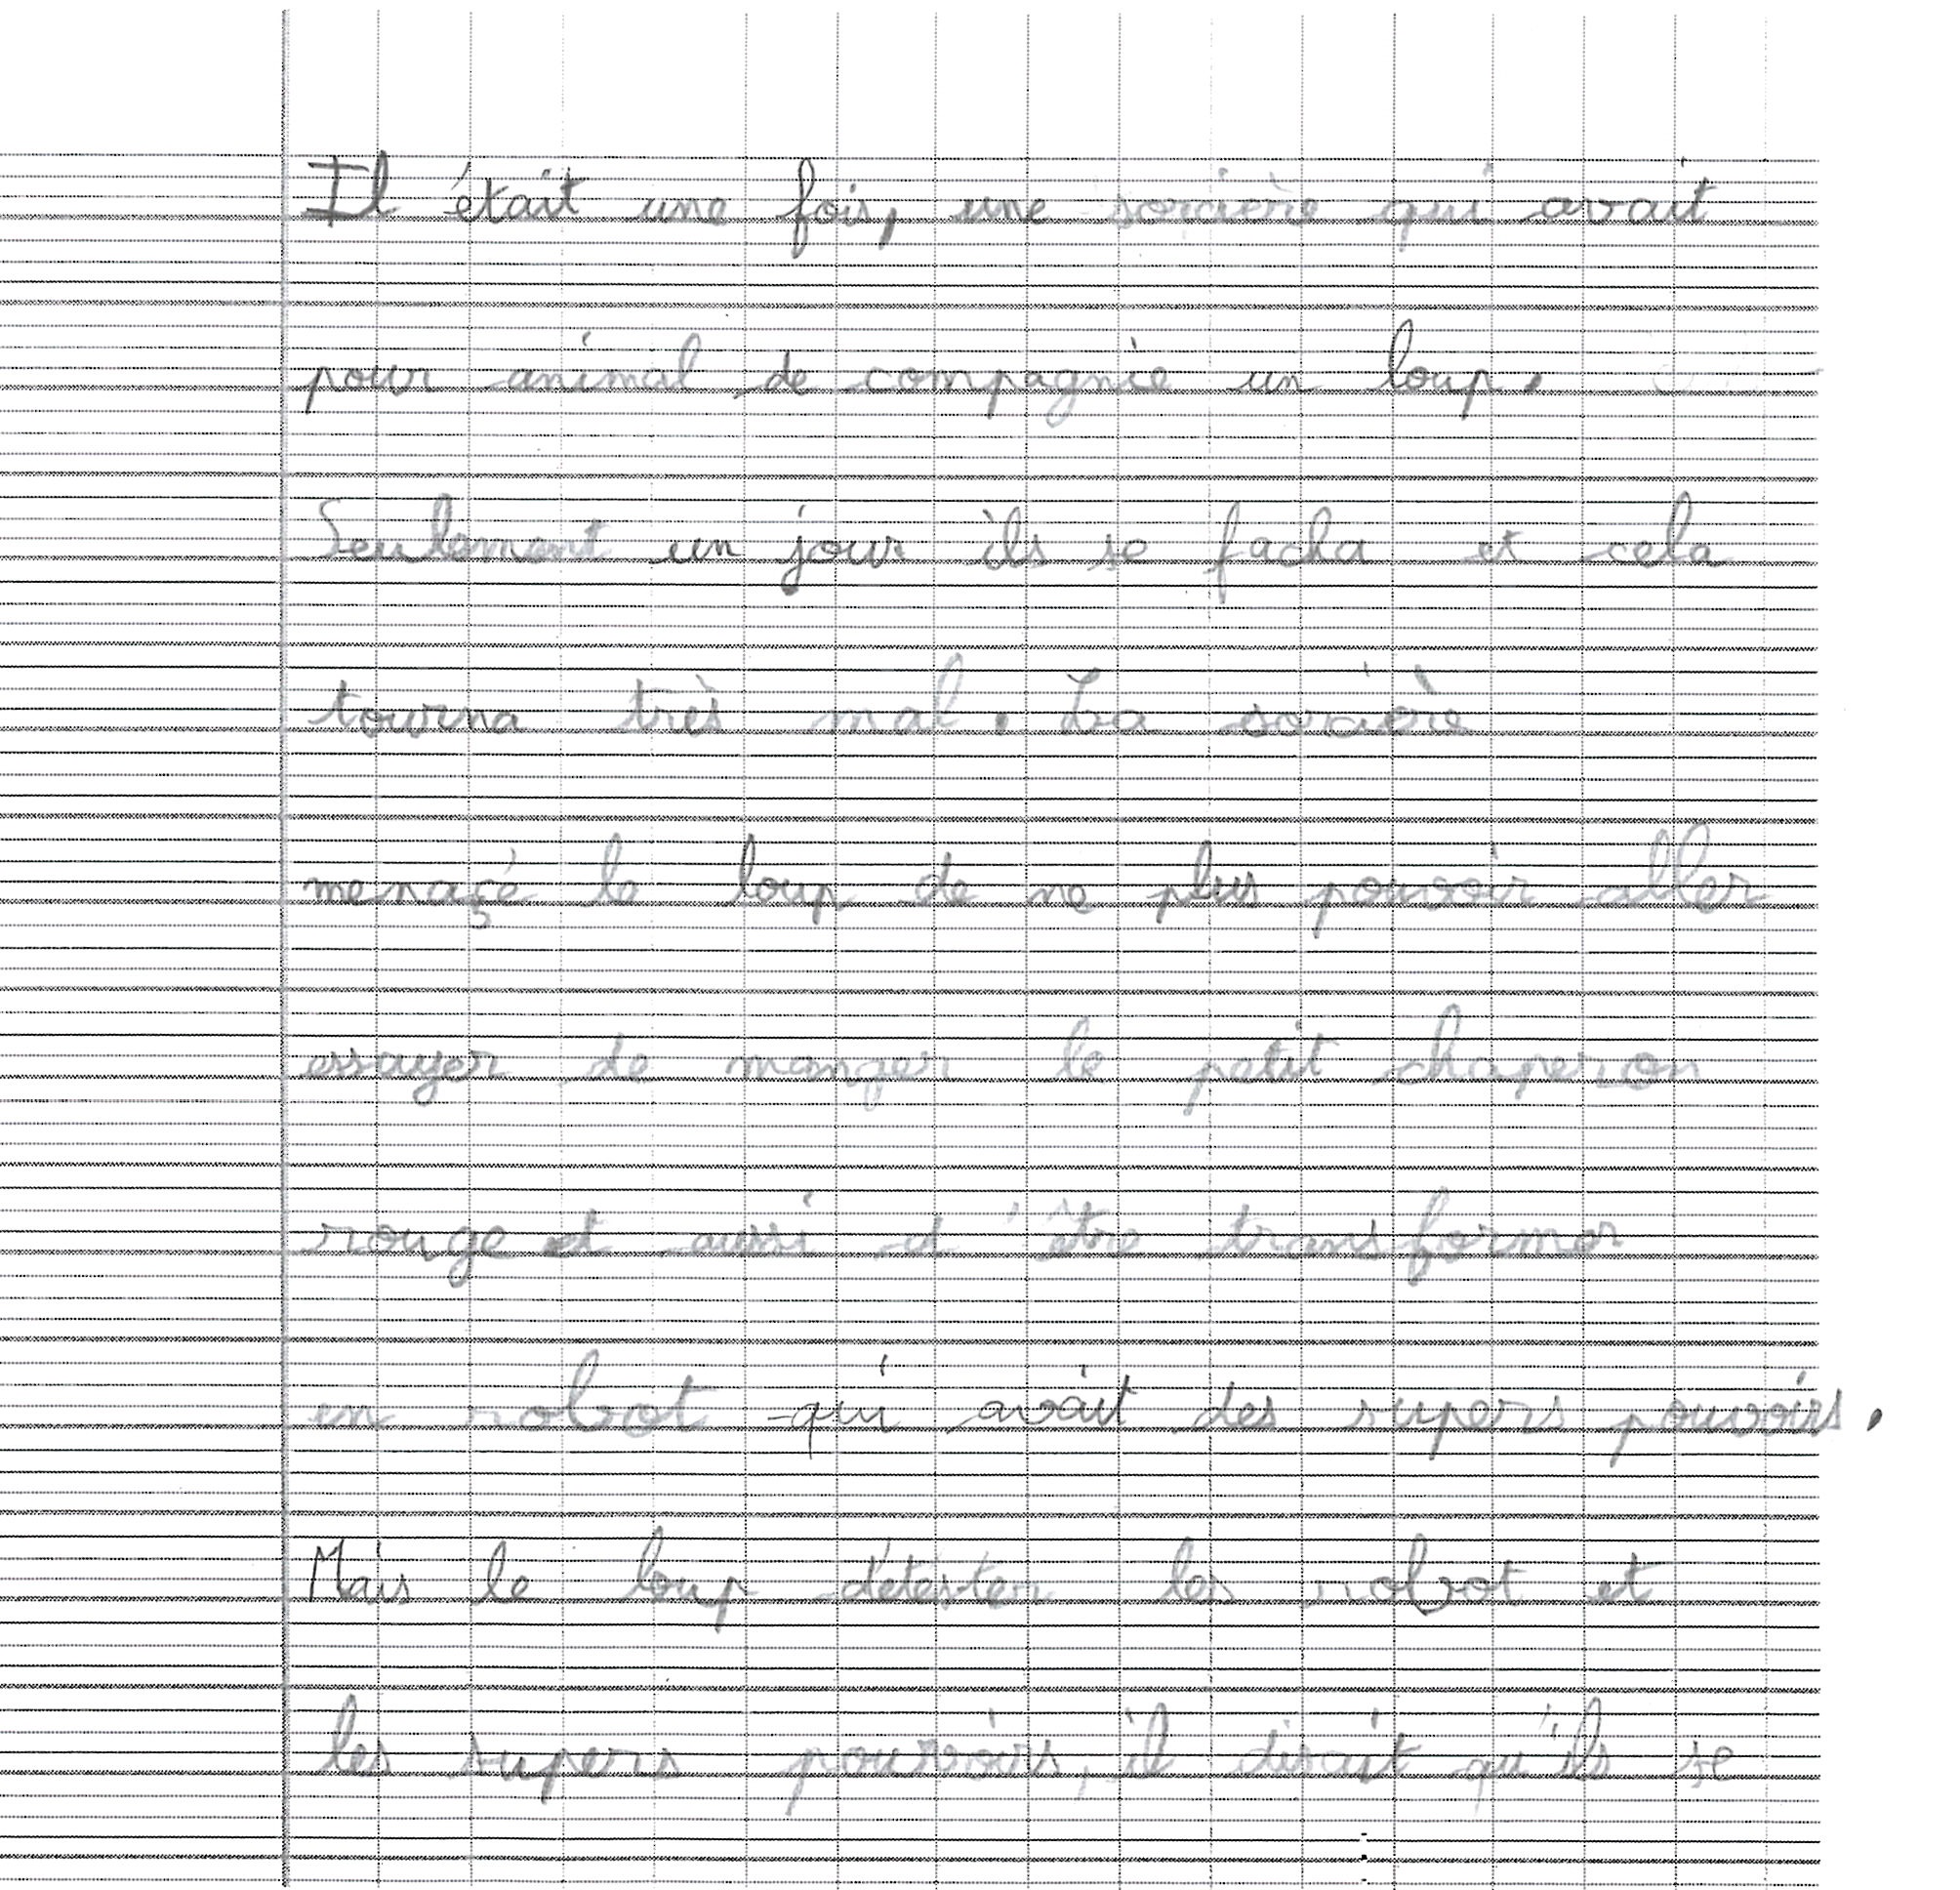 Il était une fois, une sorcière qui avait
pour animal de compagnie un loup.
Seulement un jour ils se facha et cela
tourna très mal. La sorcière
menaçé le loup de ne plus pouvoir aller
essayer de manger le petit chaperon
rouge et aussi d'être transformer
en robot qui avait des supers pouvoirs.
Mais le loup détester les robot et
les supers pouvoirs, il disait qu'ils se